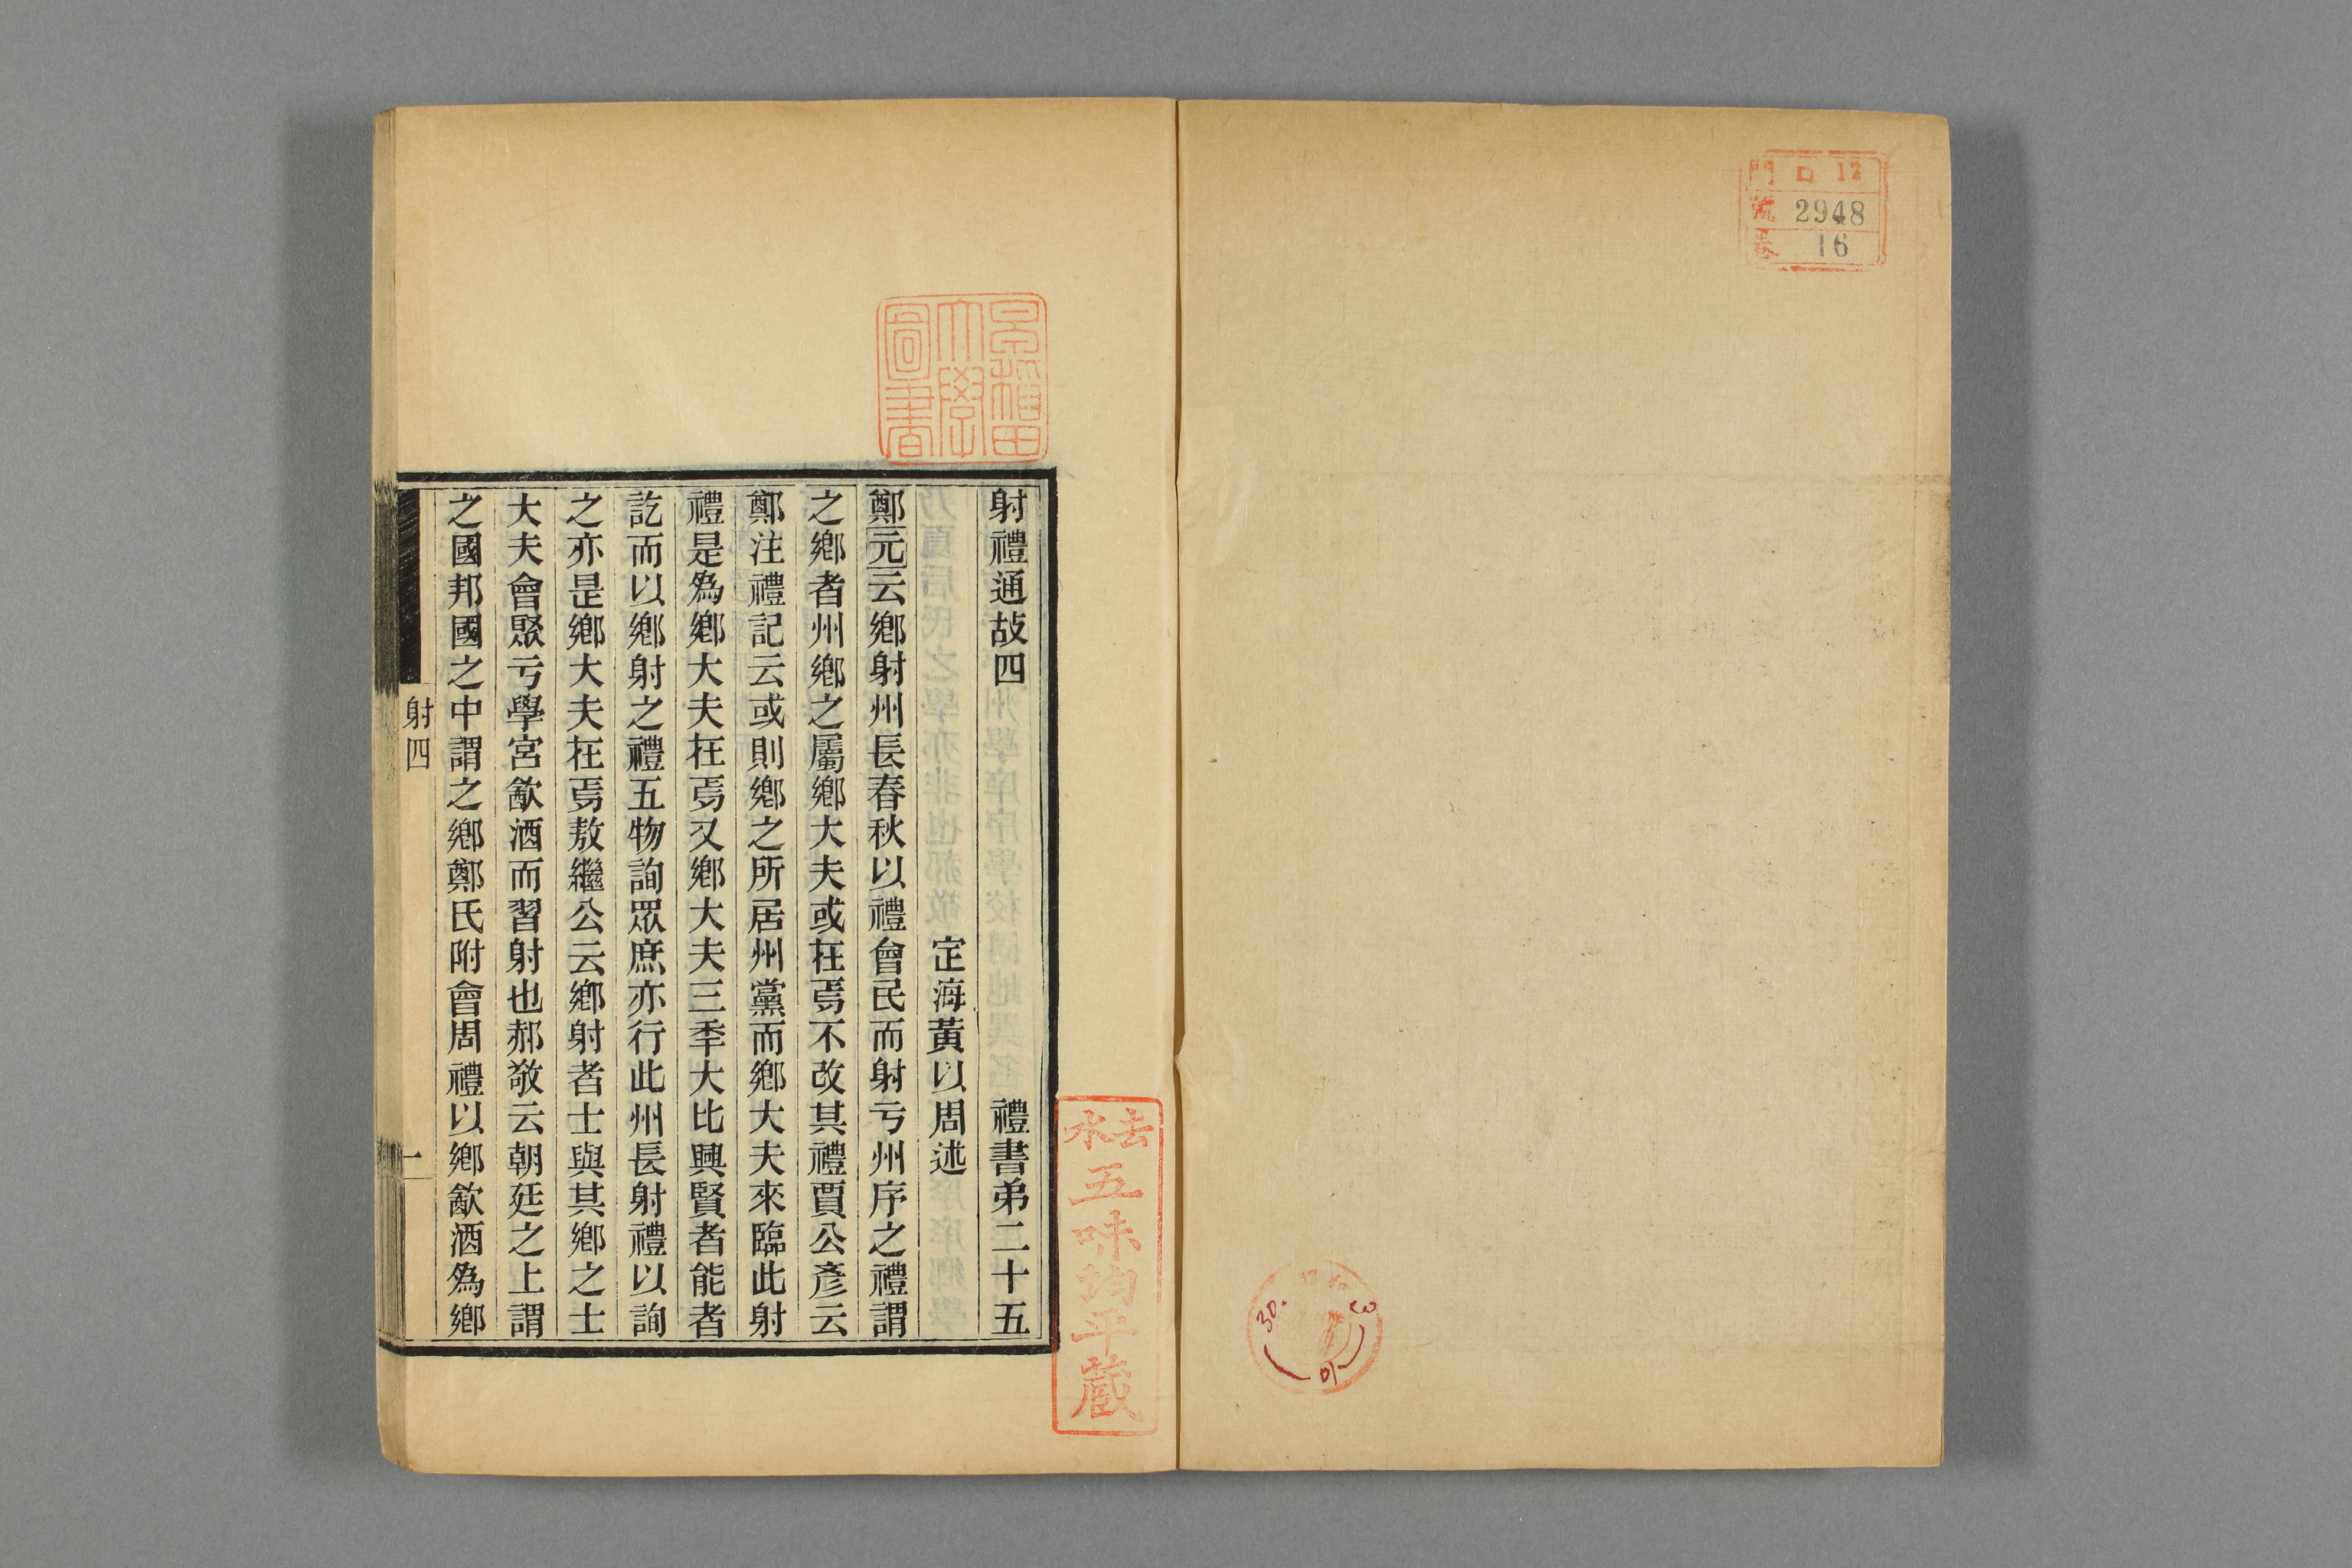 門 ロ 12
號 2948
卷 16
早稲田
大學
圖書
射禮通故四 禮書弟二十五
定海黃以周述
鄭元云鄉射州長春秋以禮會民而射亏州序之禮謂
之鄉者州鄉之屬鄉大夫或在焉不改其禮賈公彥云
鄭注禮記云或則鄉之所居州黨而鄉大夫來臨此射
禮是爲鄉大夫在焉又鄉大夫三秊大比興賢者能者
訖而以鄉射之禮五物詢眾庶亦行此州長射禮以詢
之亦是鄉大夫在焉敖繼公云鄉射者士與其鄉之士
大夫會聚亏學宮歙酒而習射也郝敬云朝廷之上謂
之國邦國之中謂之鄉鄭氏附會周禮以鄉歙酒爲鄉
射四
一
去水
五味均平藏